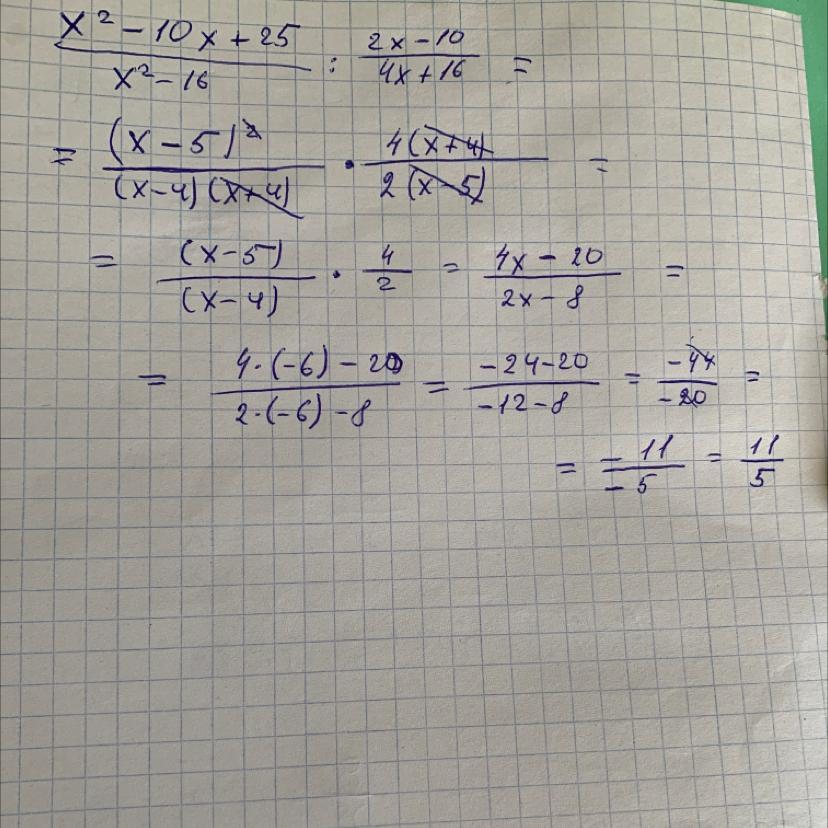 (x² - 10x + 25)/(x² - 16) : (2x - 10)/(4x + 16) =
= (x - 5)²/((x - 4)(x + 4)) · 4(x + 4)/(2(x - 5)) =
= (x - 5)/(x - 4) · 4/2 = (4x - 20)/(2x - 8) =
= (4·(-6) - 20)/(2·(-6) - 8) = (-24 - 20)/(-12 - 8) = -44/-20 =
= -11/-5 = 11/5